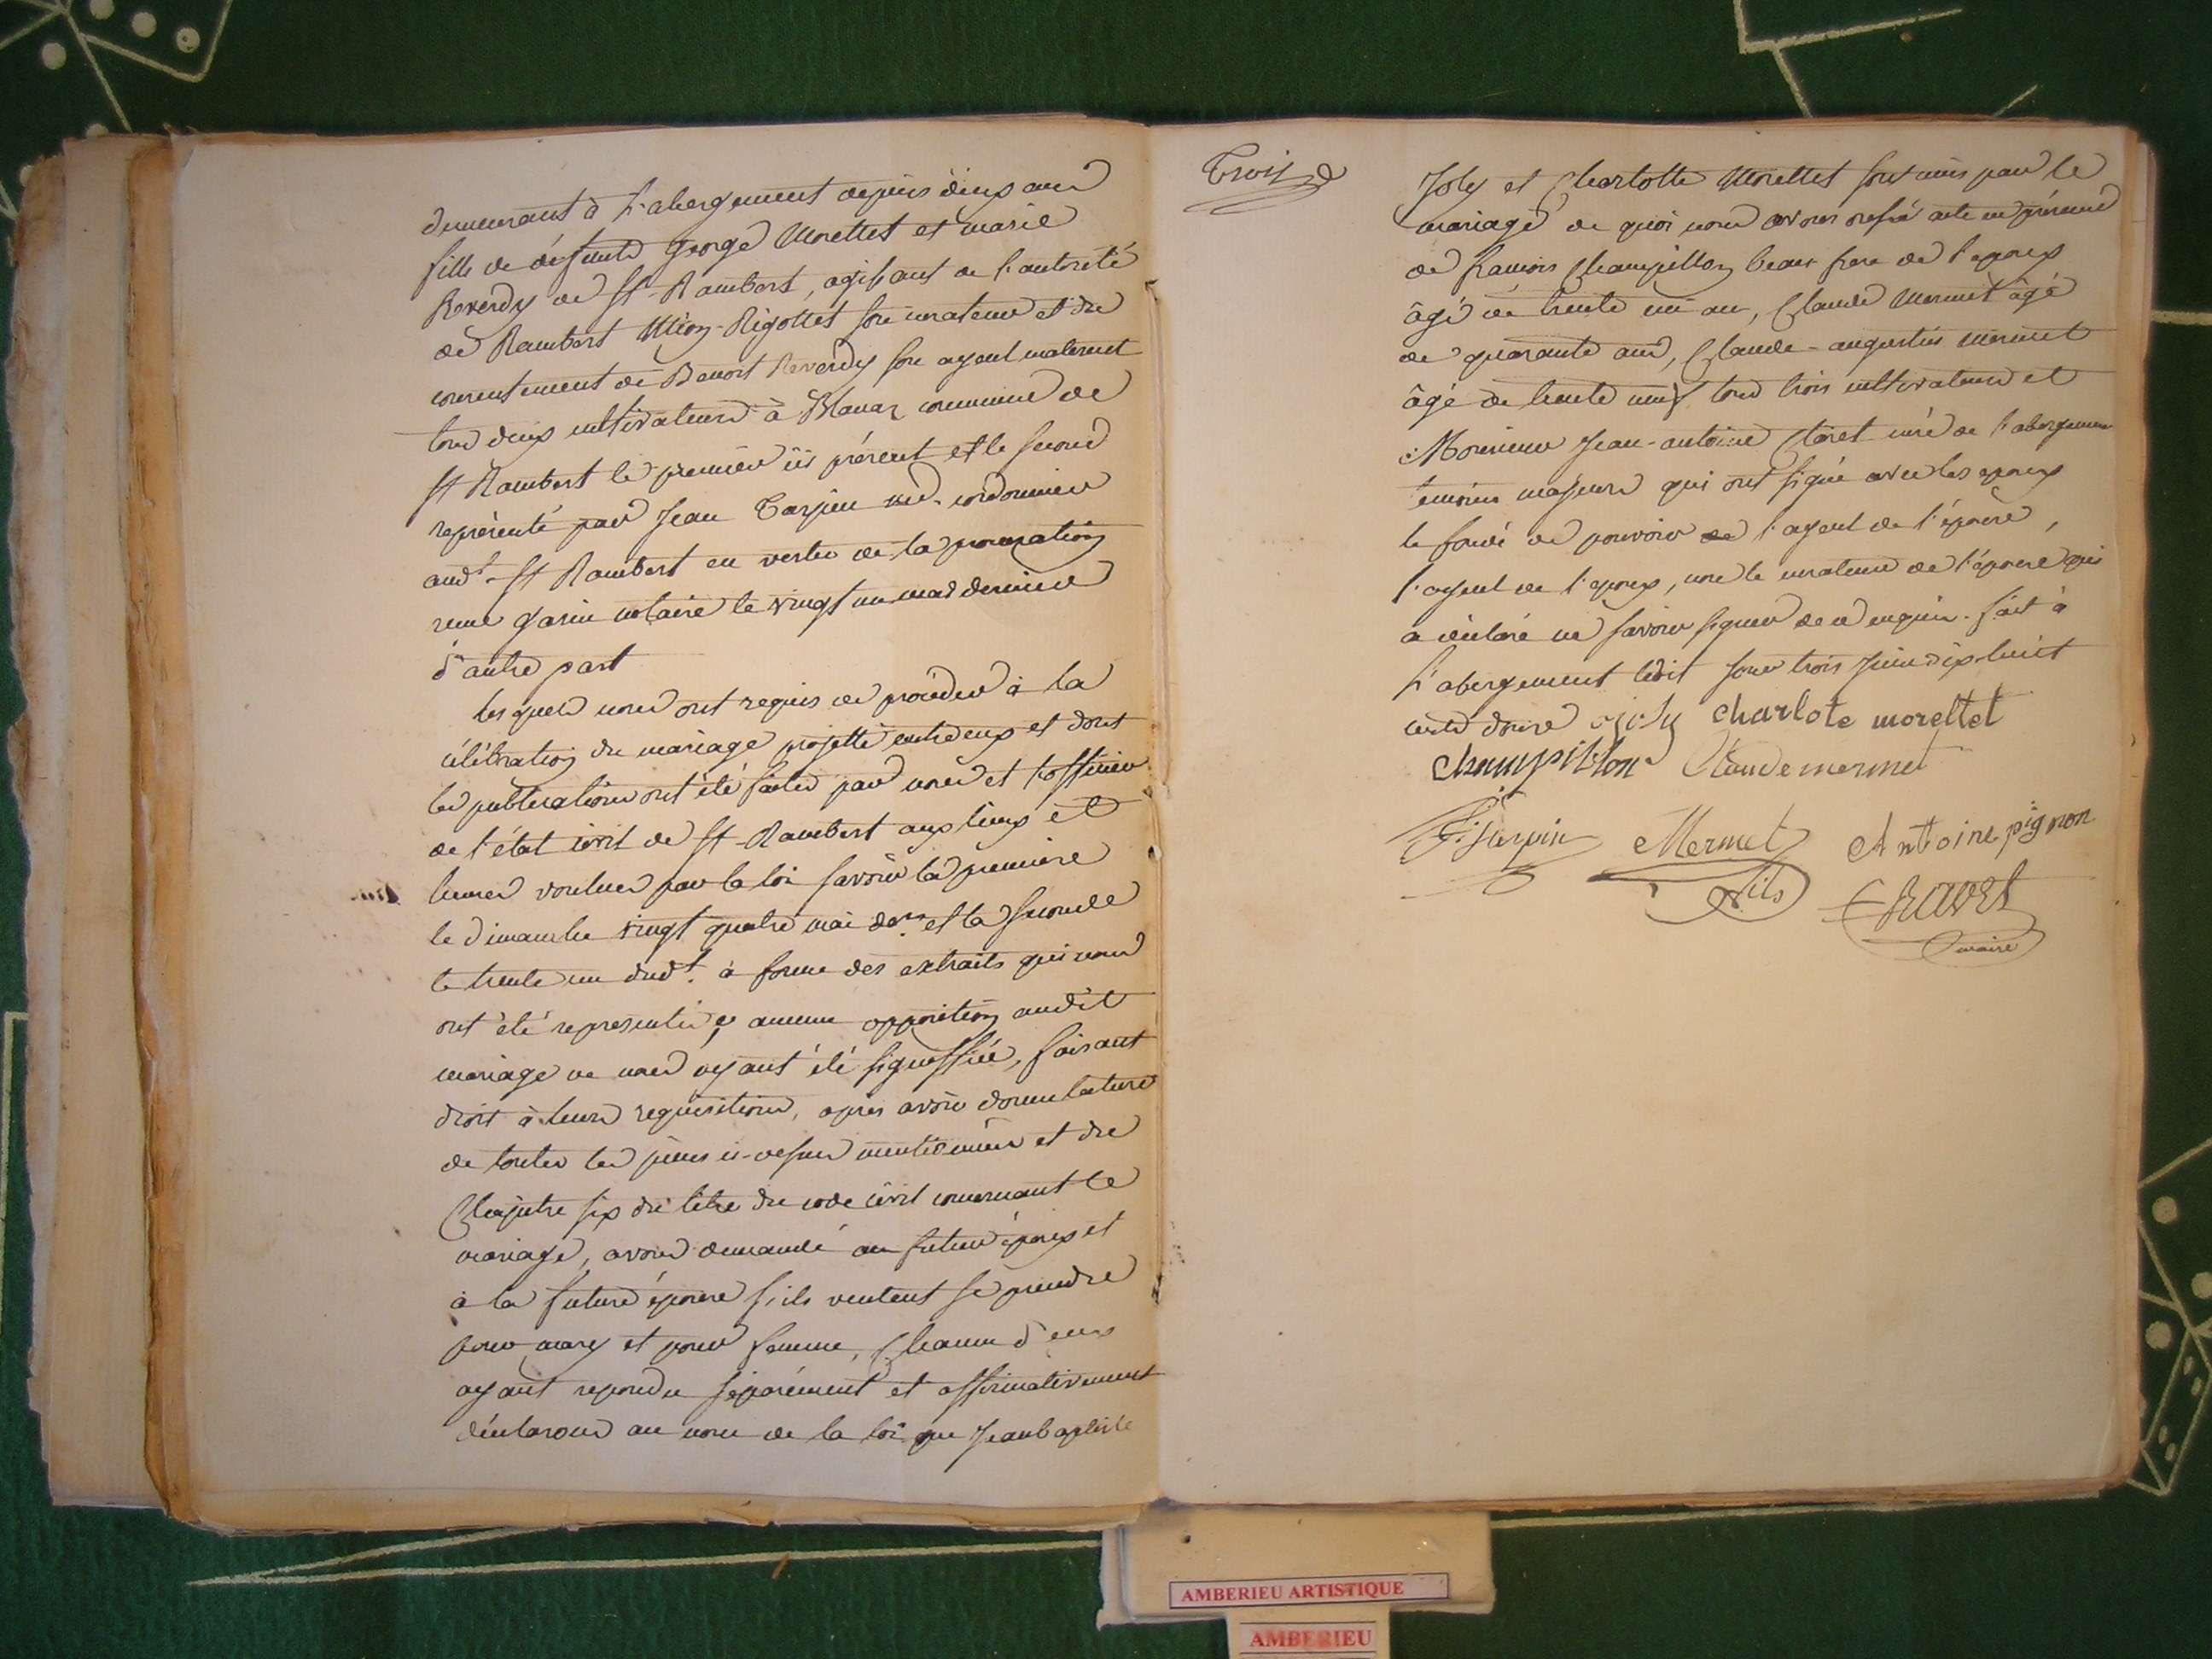 demeurant à L'abergement depuis deux ans
fille de défunts George Morettet et marie
Reverdy de St Rambert, agissant de l'autorité
de Rambert Rigottet son curateur et du
consentement de Benoit Reverdy son ayeul maternel
tous deux cultivateurs à Blanaz commune de
St Rambert le premier ici présent et le second
représenté par Jean Tarpin md. cordonnier
audt. St Rambert en vertu de la procuration
reçue garin notaire le vingt un mai dernier
d'autre part
les quels nous ont requis de procéder à la
célébration du mariage projetté entre eux et dont
les publications ont été faites par nous et l'officier
de l'état civil de St Rambert aux lieux et
heures voulues par la loi savoir la première
le dimanche vingt quatre mai der. et la seconde
le trente un dudt. à forme des extraits qui nous
ont été représentés, aucune opposition audit
mariage ne nous ayant été signiffiée, faisant
droit à leurs requisitions, après avoir donné lecture
de toutes les pièces ci-dessus mentionnées et du
Chapitre six du titre du code civil concernant le
mariage, avons demandé au futur époux et
à la future épouse s'ils veulent se prendre
pour mary et pour femme, Chacun d'eux
ayant repondu séparément et affirmativement
déclarons au nom de la loi que Jean baptiste
Trois
Joly et Charlotte Morettet sont unis par le
mariage de quoi nous avons dressé acte en présence
de francois Champillon beau frere de l'epoux
âgé de trente un an, Claude Mermet âgé
de quarante ans, Claude-augustin mermet
âgé de trente neuf tous trois cultivateurs et
Monsieur Jean-antoine curé de l'abergement
temoins majeurs qui ont signé avec les epoux
le fondé de pouvoir de l'ayeul de l'épouse,
l'ayeul de l'epoux, non le curateur de l'épouse qui
a déclaré ne savoir signer de ce enquis. fait à
L'abergement ledit jour trois juin dix-huit
cents douze joly charlote morettet
Champillon Claude mermet
J. Tarpin Mermet Antoine pignon
fils
Maire
AMBERIEU ARTISTIQUE
AMBERIEU